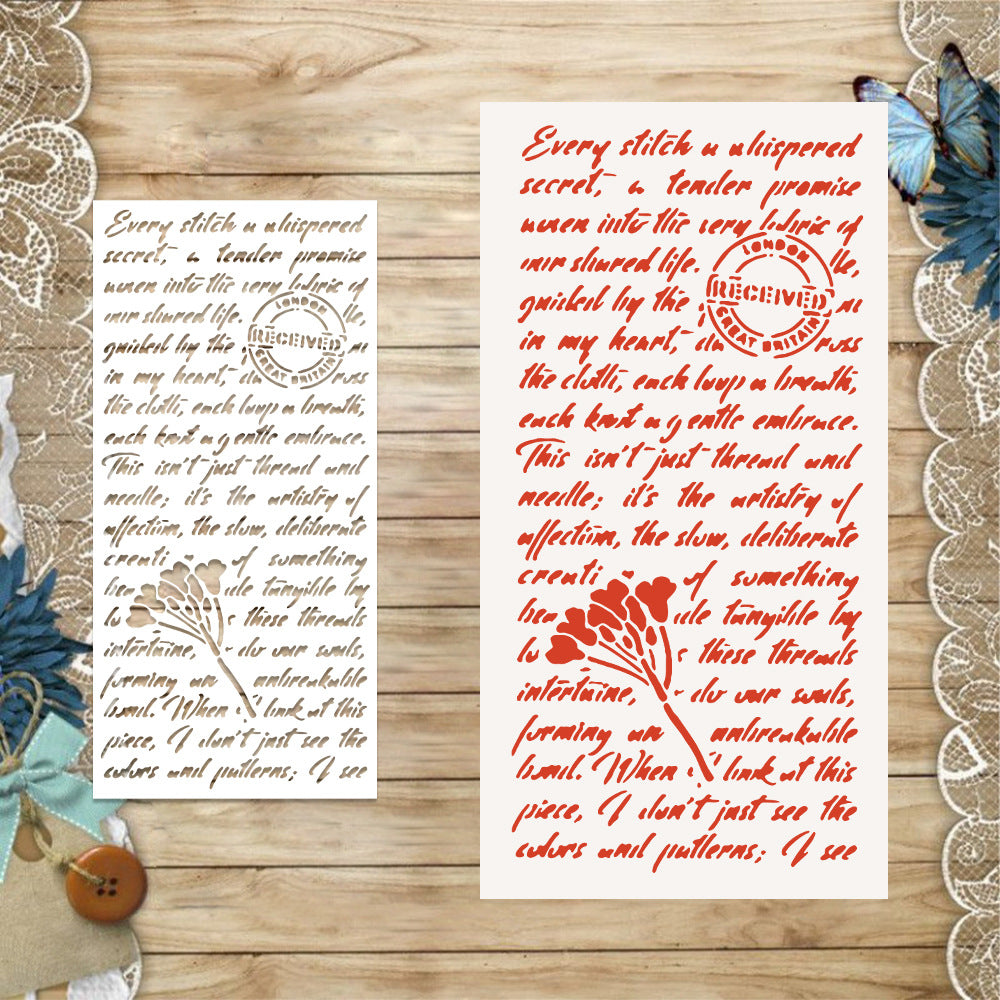 Every stitch a whispered
secret, a tender promise
woven into the very fabric of
our shared life.
guided by the
in my heart,
the cloth, each loop a breath,
each knot a gentle embrace.
This isn't just thread and
needle; it's the artistry of
affection, the slow, deliberate
of something
tangible by
these threads
intertwine, do our souls,
forming an unbreakable
bond. When I look at this
piece, I don't just see the
colors and patterns; I see
LONDON
RECEIVED
GREAT BRITAIN
Every stitch a whispered
secret, a tender promise
woven into the very fabric of
our shared life.
guided by the
in my heart,
the cloth, each loop a breath,
each knot a gentle embrace.
This isn't just thread and
needle; it's the artistry of
affection, the slow, deliberate
of something
tangible by
these threads
intertwine, do our souls,
forming an unbreakable
bond. When I look at this
piece, I don't just see the
colors and patterns; I see
LONDON
RECEIVED
GREAT BRITAIN